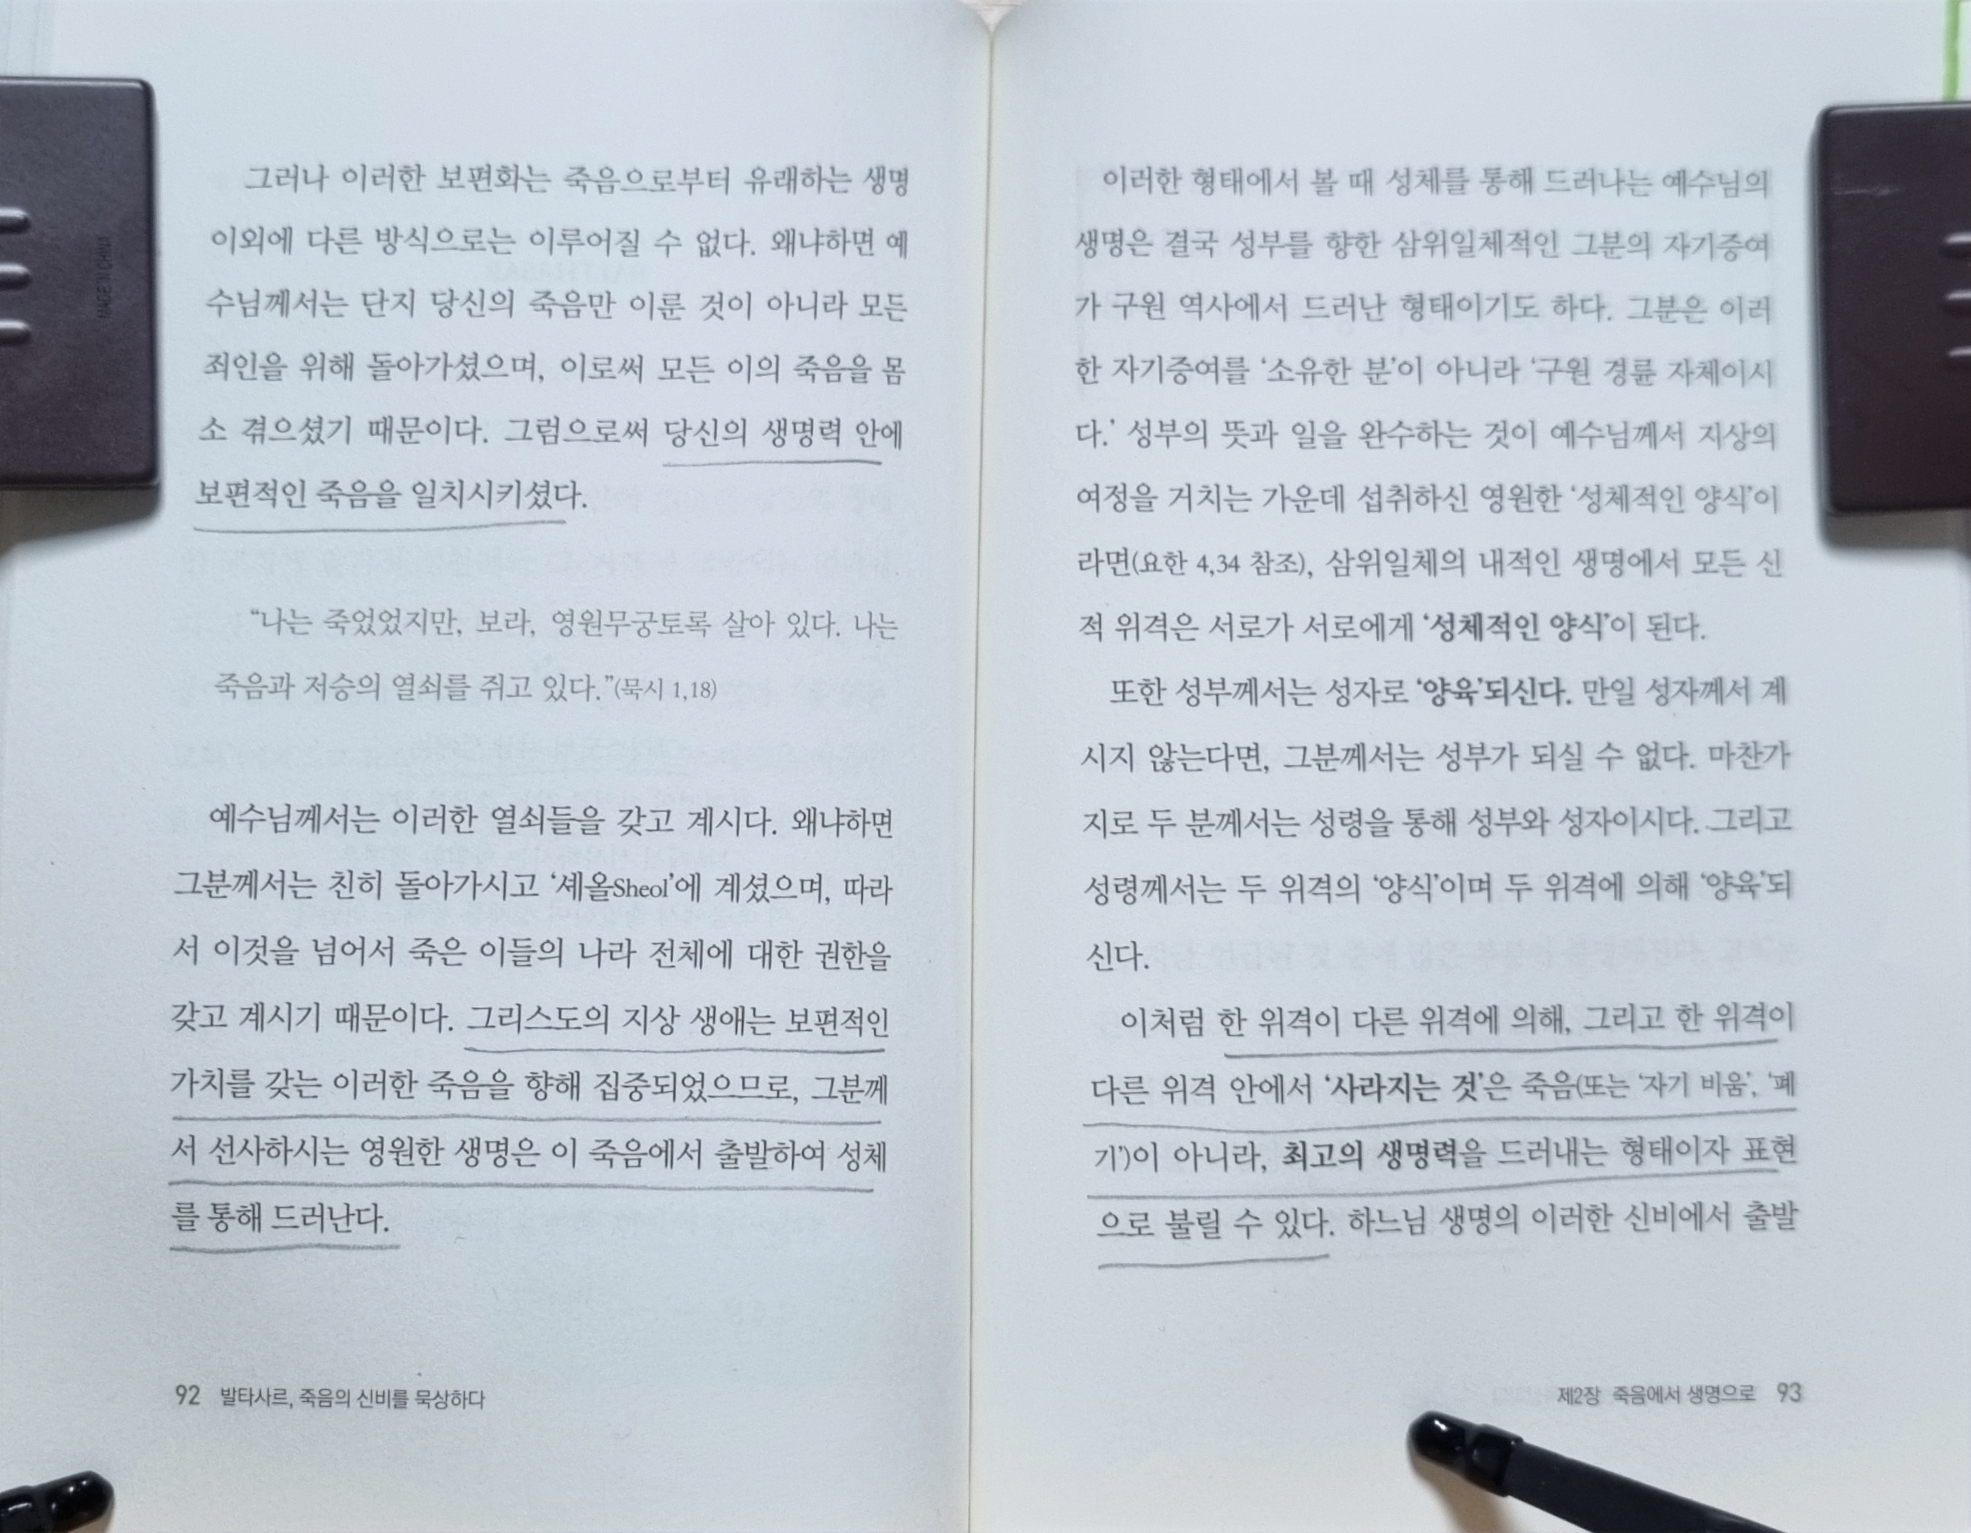 그러나 이러한 보편화는 죽음으로부터 유래하는 생명
이외에 다른 방식으로는 이루어질 수 없다. 왜냐하면 예
수님께서는 단지 당신의 죽음만 이룬 것이 아니라 모든
죄인을 위해 돌아가셨으며, 이로써 모든 이의 죽음을 몸
소 겪으셨기 때문이다. 그럼으로써 당신의 생명력 안에
보편적인 죽음을 일치시키셨다.
“나는 죽었었지만, 보라, 영원무궁토록 살아 있다. 나는
죽음과 저승의 열쇠를 쥐고 있다.”(묵시 1,18)
예수님께서는 이러한 열쇠들을 갖고 계시다. 왜냐하면
그분께서는 친히 돌아가시고 ‘셰올Sheol’에 계셨으며, 따라
서 이것을 넘어서 죽은 이들의 나라 전체에 대한 권한을
갖고 계시기 때문이다. 그리스도의 지상 생애는 보편적인
가치를 갖는 이러한 죽음을 향해 집중되었으므로, 그분께
서 선사하시는 영원한 생명은 이 죽음에서 출발하여 성체
를 통해 드러난다.
92 발타사르, 죽음의 신비를 묵상하다
이러한 형태에서 볼 때 성체를 통해 드러나는 예수님의
생명은 결국 성부를 향한 삼위일체적인 그분의 자기증여
가 구원 역사에서 드러난 형태이기도 하다. 그분은 이러
한 자기증여를 ‘소유한 분’이 아니라 ‘구원 경륜 자체이시
다.’ 성부의 뜻과 일을 완수하는 것이 예수님께서 지상의
여정을 거치는 가운데 섭취하신 영원한 ‘성체적인 양식’이
라면(요한 4,34 참조), 삼위일체의 내적인 생명에서 모든 신
적 위격은 서로가 서로에게 ‘성체적인 양식’이 된다.
또한 성부께서는 성자로 ‘양육’되신다. 만일 성자께서 계
시지 않는다면, 그분께서는 성부가 되실 수 없다. 마찬가
지로 두 분께서는 성령을 통해 성부와 성자이시다. 그리고
성령께서는 두 위격의 ‘양식’이며 두 위격에 의해 ‘양육’되
신다.
이처럼 한 위격이 다른 위격에 의해, 그리고 한 위격이
다른 위격 안에서 ‘사라지는 것’은 죽음(또는 ‘자기 비움’, ‘폐
기’)이 아니라, 최고의 생명력을 드러내는 형태이자 표현
으로 불릴 수 있다. 하느님 생명의 이러한 신비에서 출발
제2장 죽음에서 생명으로 93
MADE IN CHINA